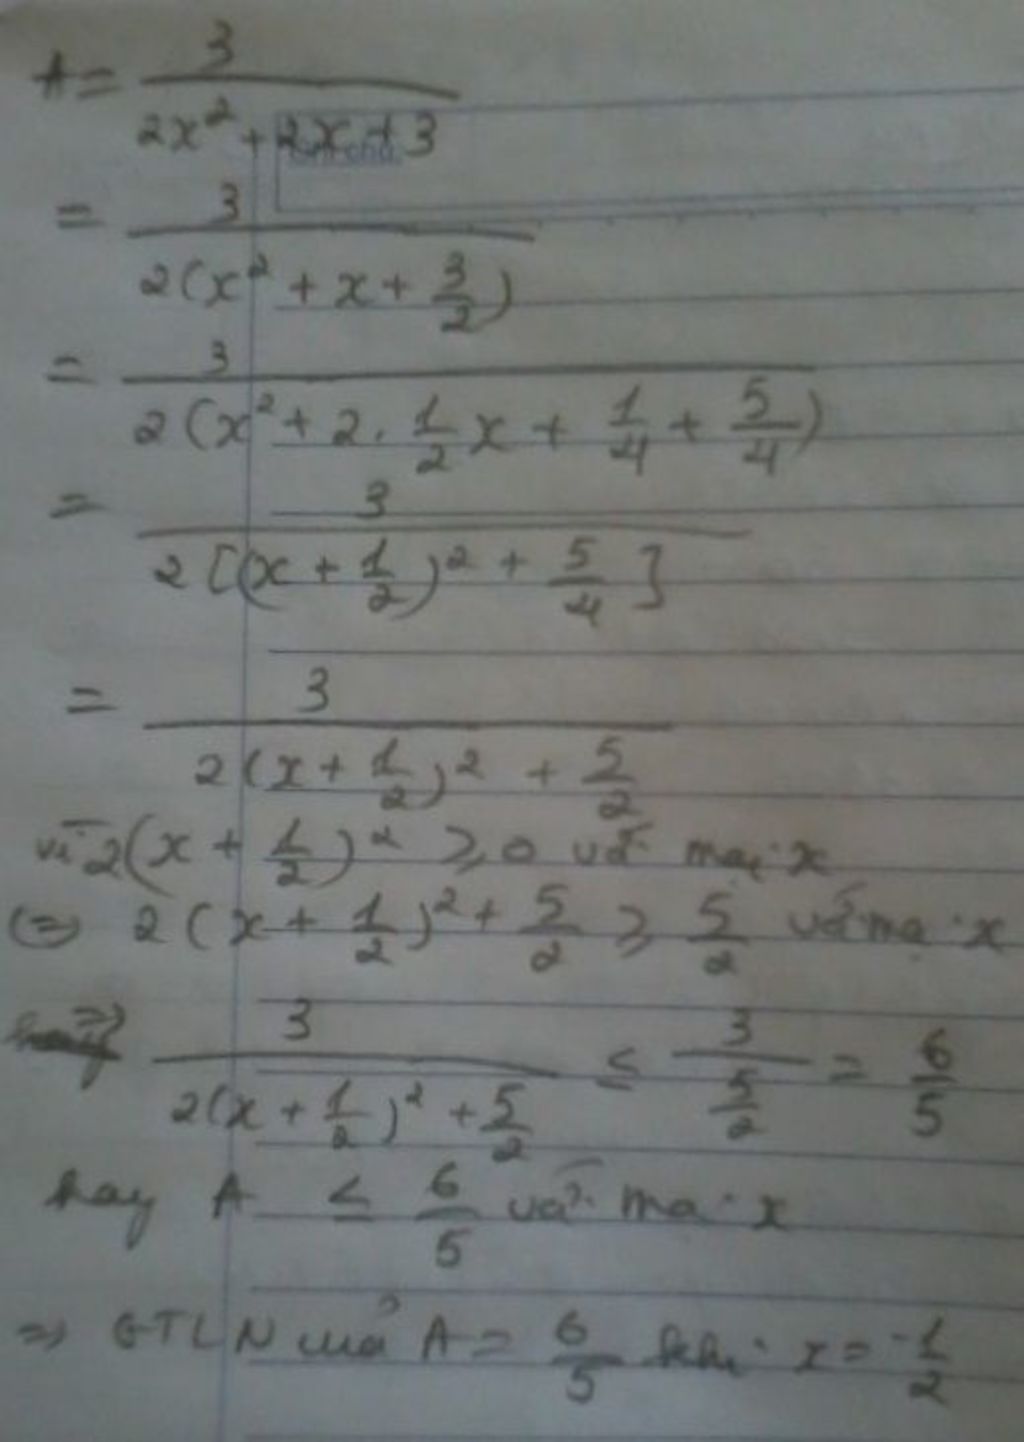 A = 3/(2x² + 2x + 3)
= 3/(2(x² + x + 3/2))
= 3/(2(x² + 2. 1/2 x + 1/4 + 5/4))
= 3/(2[(x + 1/2)² + 5/4])
= 3/(2(x + 1/2)² + 5/2)
vì 2(x + 1/2)² ≥ 0 với mọi x
(=) 2(x + 1/2)² + 5/2 ≥ 5/2 với mọi x
=> 3/(2(x + 1/2)² + 5/2) ≤ 3/(5/2) = 6/5
hay A ≤ 6/5 với mọi x
=> GTLN của A = 6/5 khi x = -1/2